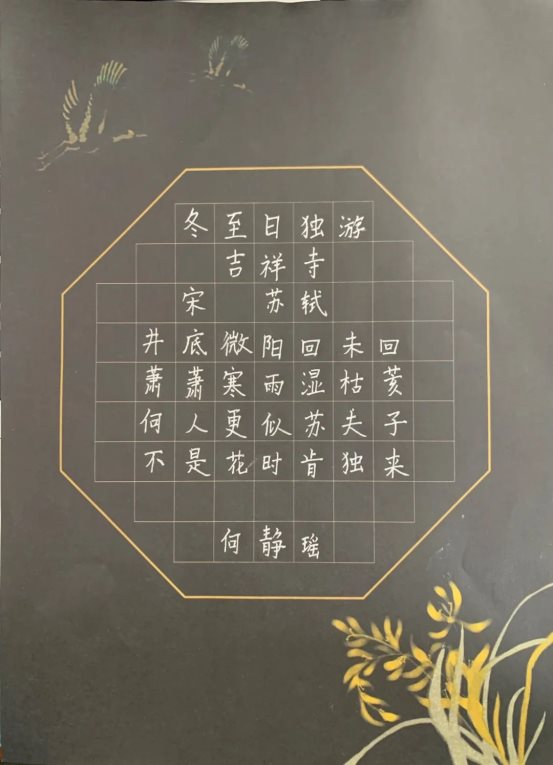 冬至日独游
吉祥寺
宋 苏轼
井底微阳回未回
萧萧寒雨湿枯荄
何人更似苏夫子
不是花时肯独来
何静瑶